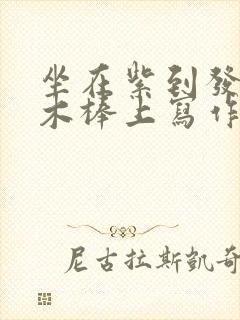 坐在紫到發
木棒上寫作
尼古拉斯凱奇